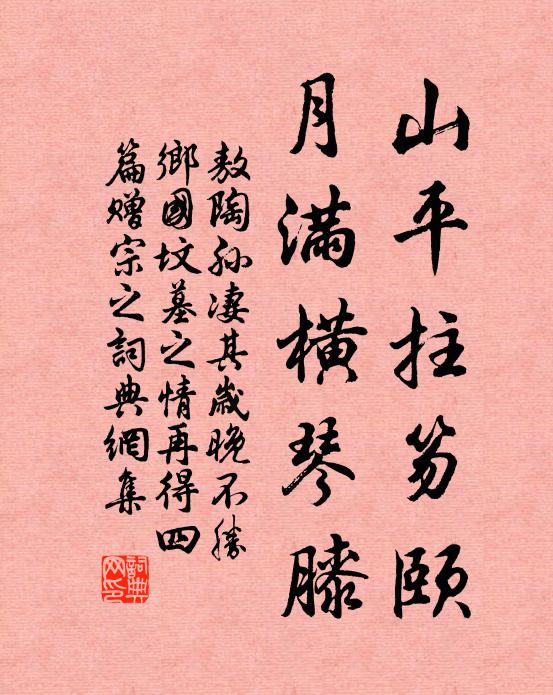 山平拄笏頤
月滿橫琴膝
敖陶孫凄其歲晚不勝
鄉國墳墓之情再得四
篇贈宗之詞典網集
詞典网印